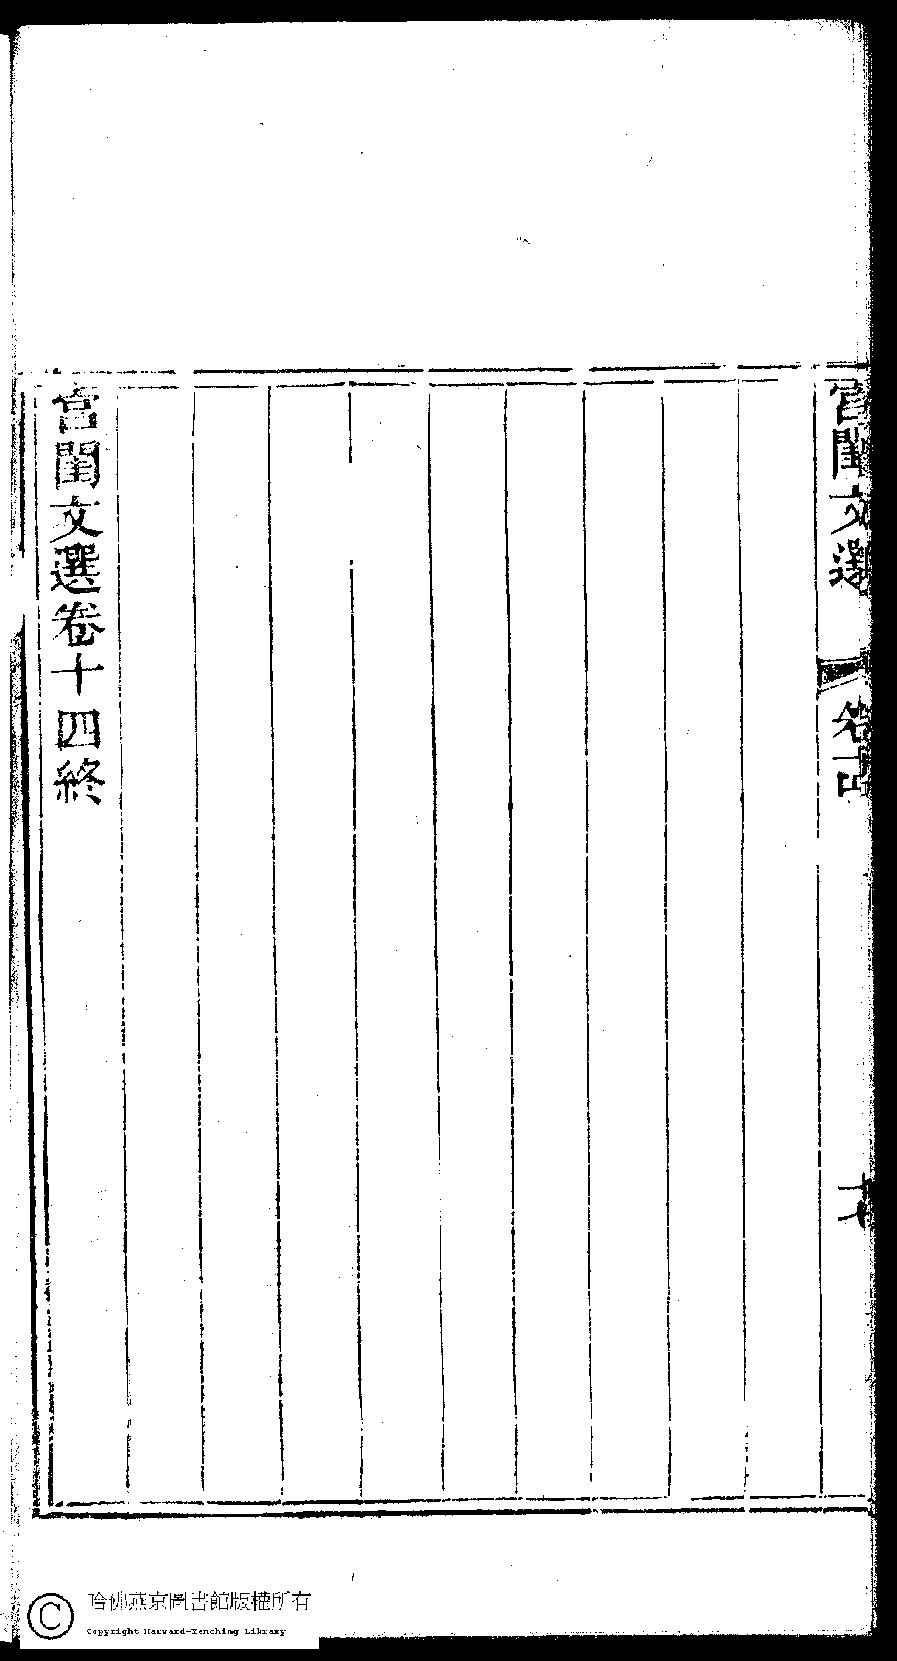 宮閨文選
卷十四
宮閨文選卷十四終
哈佛燕京圖書館版權所有
Copyright Harvard-Yenching Library